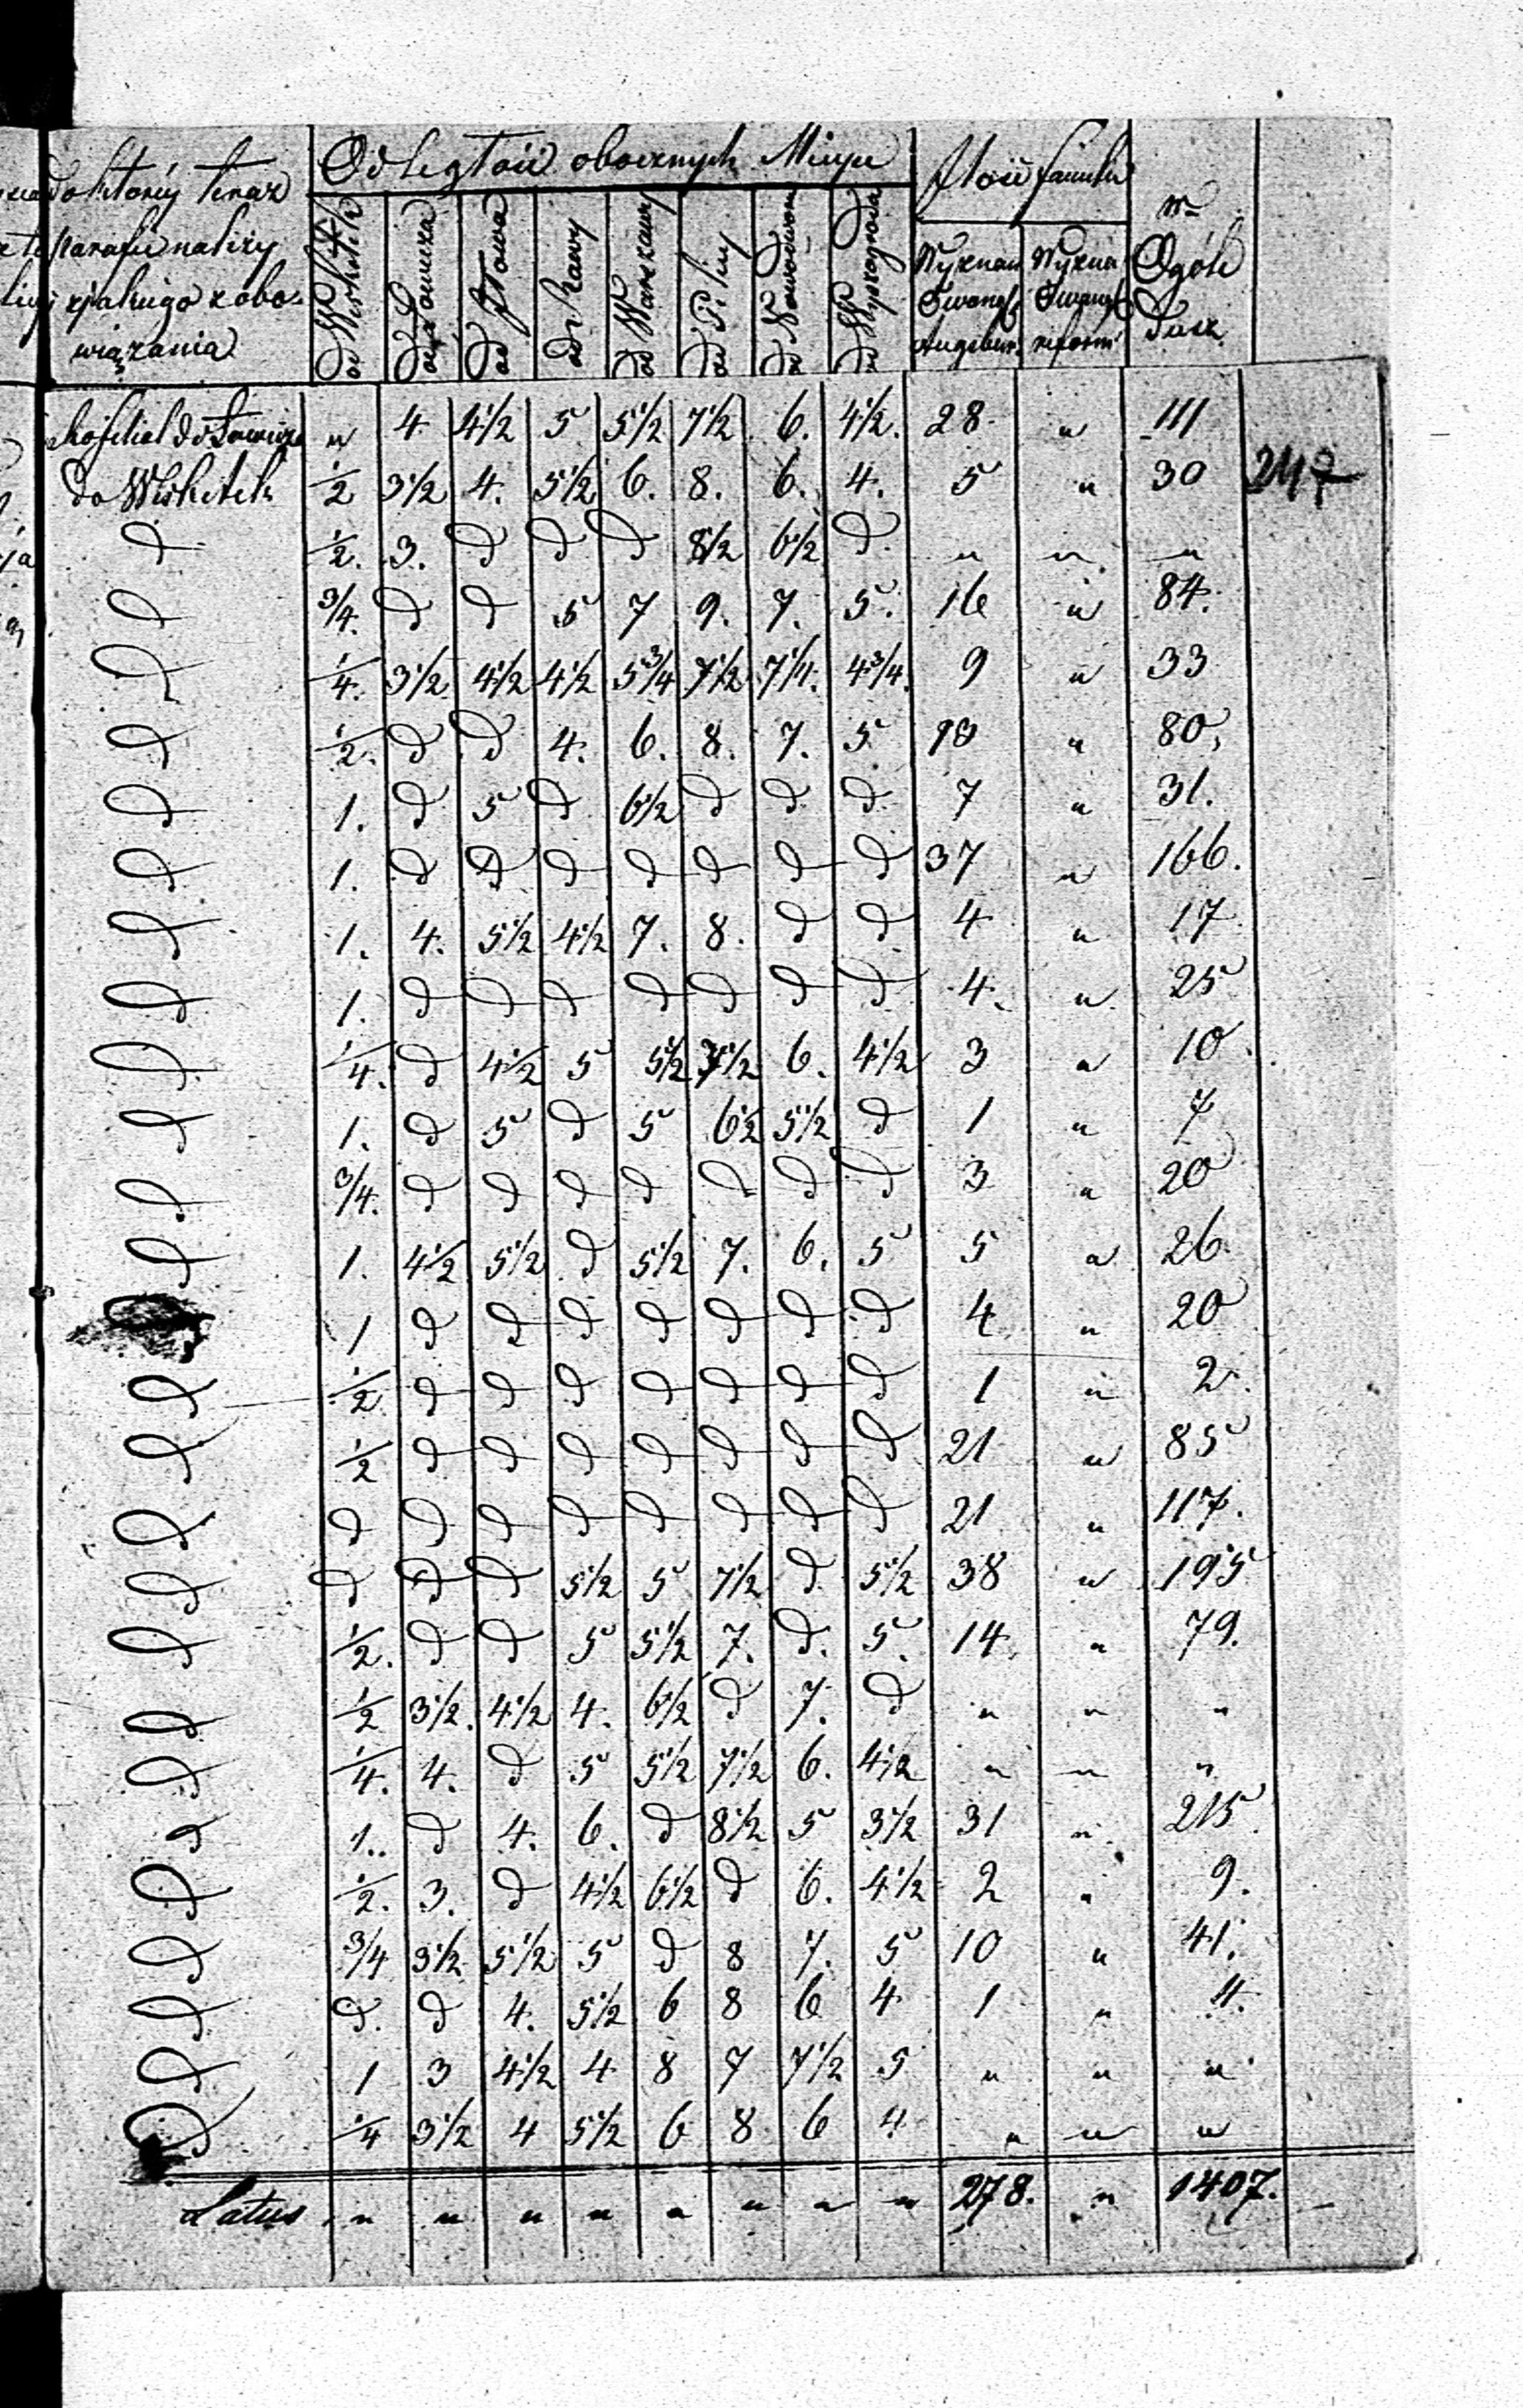 do którey teraz
Parafii należy
z jakiego zobo-
wiązania
Odległość obocznych Mieysc
Ilość familii
w
Ogóle
Dusz
od Wiskitek
od Łowicza
od Iłowa
od Rawy
od Warszawy
od Pilicy
od Nowodworu
od Wyszogroda
Wyznan Ewang Augsbur.
Wyzna Ewang reform
jako filial do Łowicza " 4 4 1/2 5 5 1/2 7 1/2 6. 4 1/2. 28 " 111
do Wiskitek 1/2 3 1/2 4. 5 1/2 6. 8. 6. 4. 5 " 30 247
d 1/2. 3. d d d 8 1/2 6 1/2 d. " " "
d 3/4. d d 5 7 9. 7. 5. 16 " 84.
d 1/4. 3 1/2 4 1/2 4 1/2 5 3/4 7 1/2 7 1/4. 4 3/4. 9 " 33
d 1/2. d d 4. 6. 8. 7. 5 13 " 80.
d 1. d 5 d 6 1/2 d d d 7 " 31.
d 1. d d d d d d d 37 " 166.
d 1. 4. 5 1/2 4 1/2 7. 8. d d 4 " 17
d 1. d d d d d d d 4. " 25
d 1/4. d 4 1/2 5 5 1/2 7 1/2 6. 4 1/2 3 " 10
d 1. d 5 d 5 6 1/2 5 1/2 d 1 " 7
d 3/4. d d d d d d d 3 " 20
d 1. 4 1/2 5 1/2 d 5 1/2 7. 6. 5 5 " 26
d 1 d d d d d d d 4 " 20
d 1/2 d d d d d d d 1 " 2.
d 1/2 d d d d d d d 21 " 85
d d d d d d d d d 21 " 117.
d d d d 5 1/2 5 7 1/2 d 5 1/2 38 " 195
d 1/2. d d 5 5 1/2 7. d. 5. 14. " 79.
d 1/2 3 1/2. 4 1/2 4. 6 1/2 d 7. d " " "
d 1/4. 4. d 5 5 1/2 7 1/2 6. 4 1/2 " " "
d 1.. d 4. 6. d 8 1/2 5 3 1/2 31 " 215
d 1/2. 3. d 4 1/2 6 1/2 d 6. 4 1/2 2 " 9.
d 3/4 3 1/2 5 1/2 5 d 8 7. 5 10 " 41.
d d. d 4. 5 1/2 6 8 6 4 1 " 4.
d 1 3 4 1/2 4 8 7 7 1/2 5 " " "
d 1/4 3 1/2 4 5 1/2 6 8 6 4 " " "
Latus " " " " " " " " 278. " 1407.